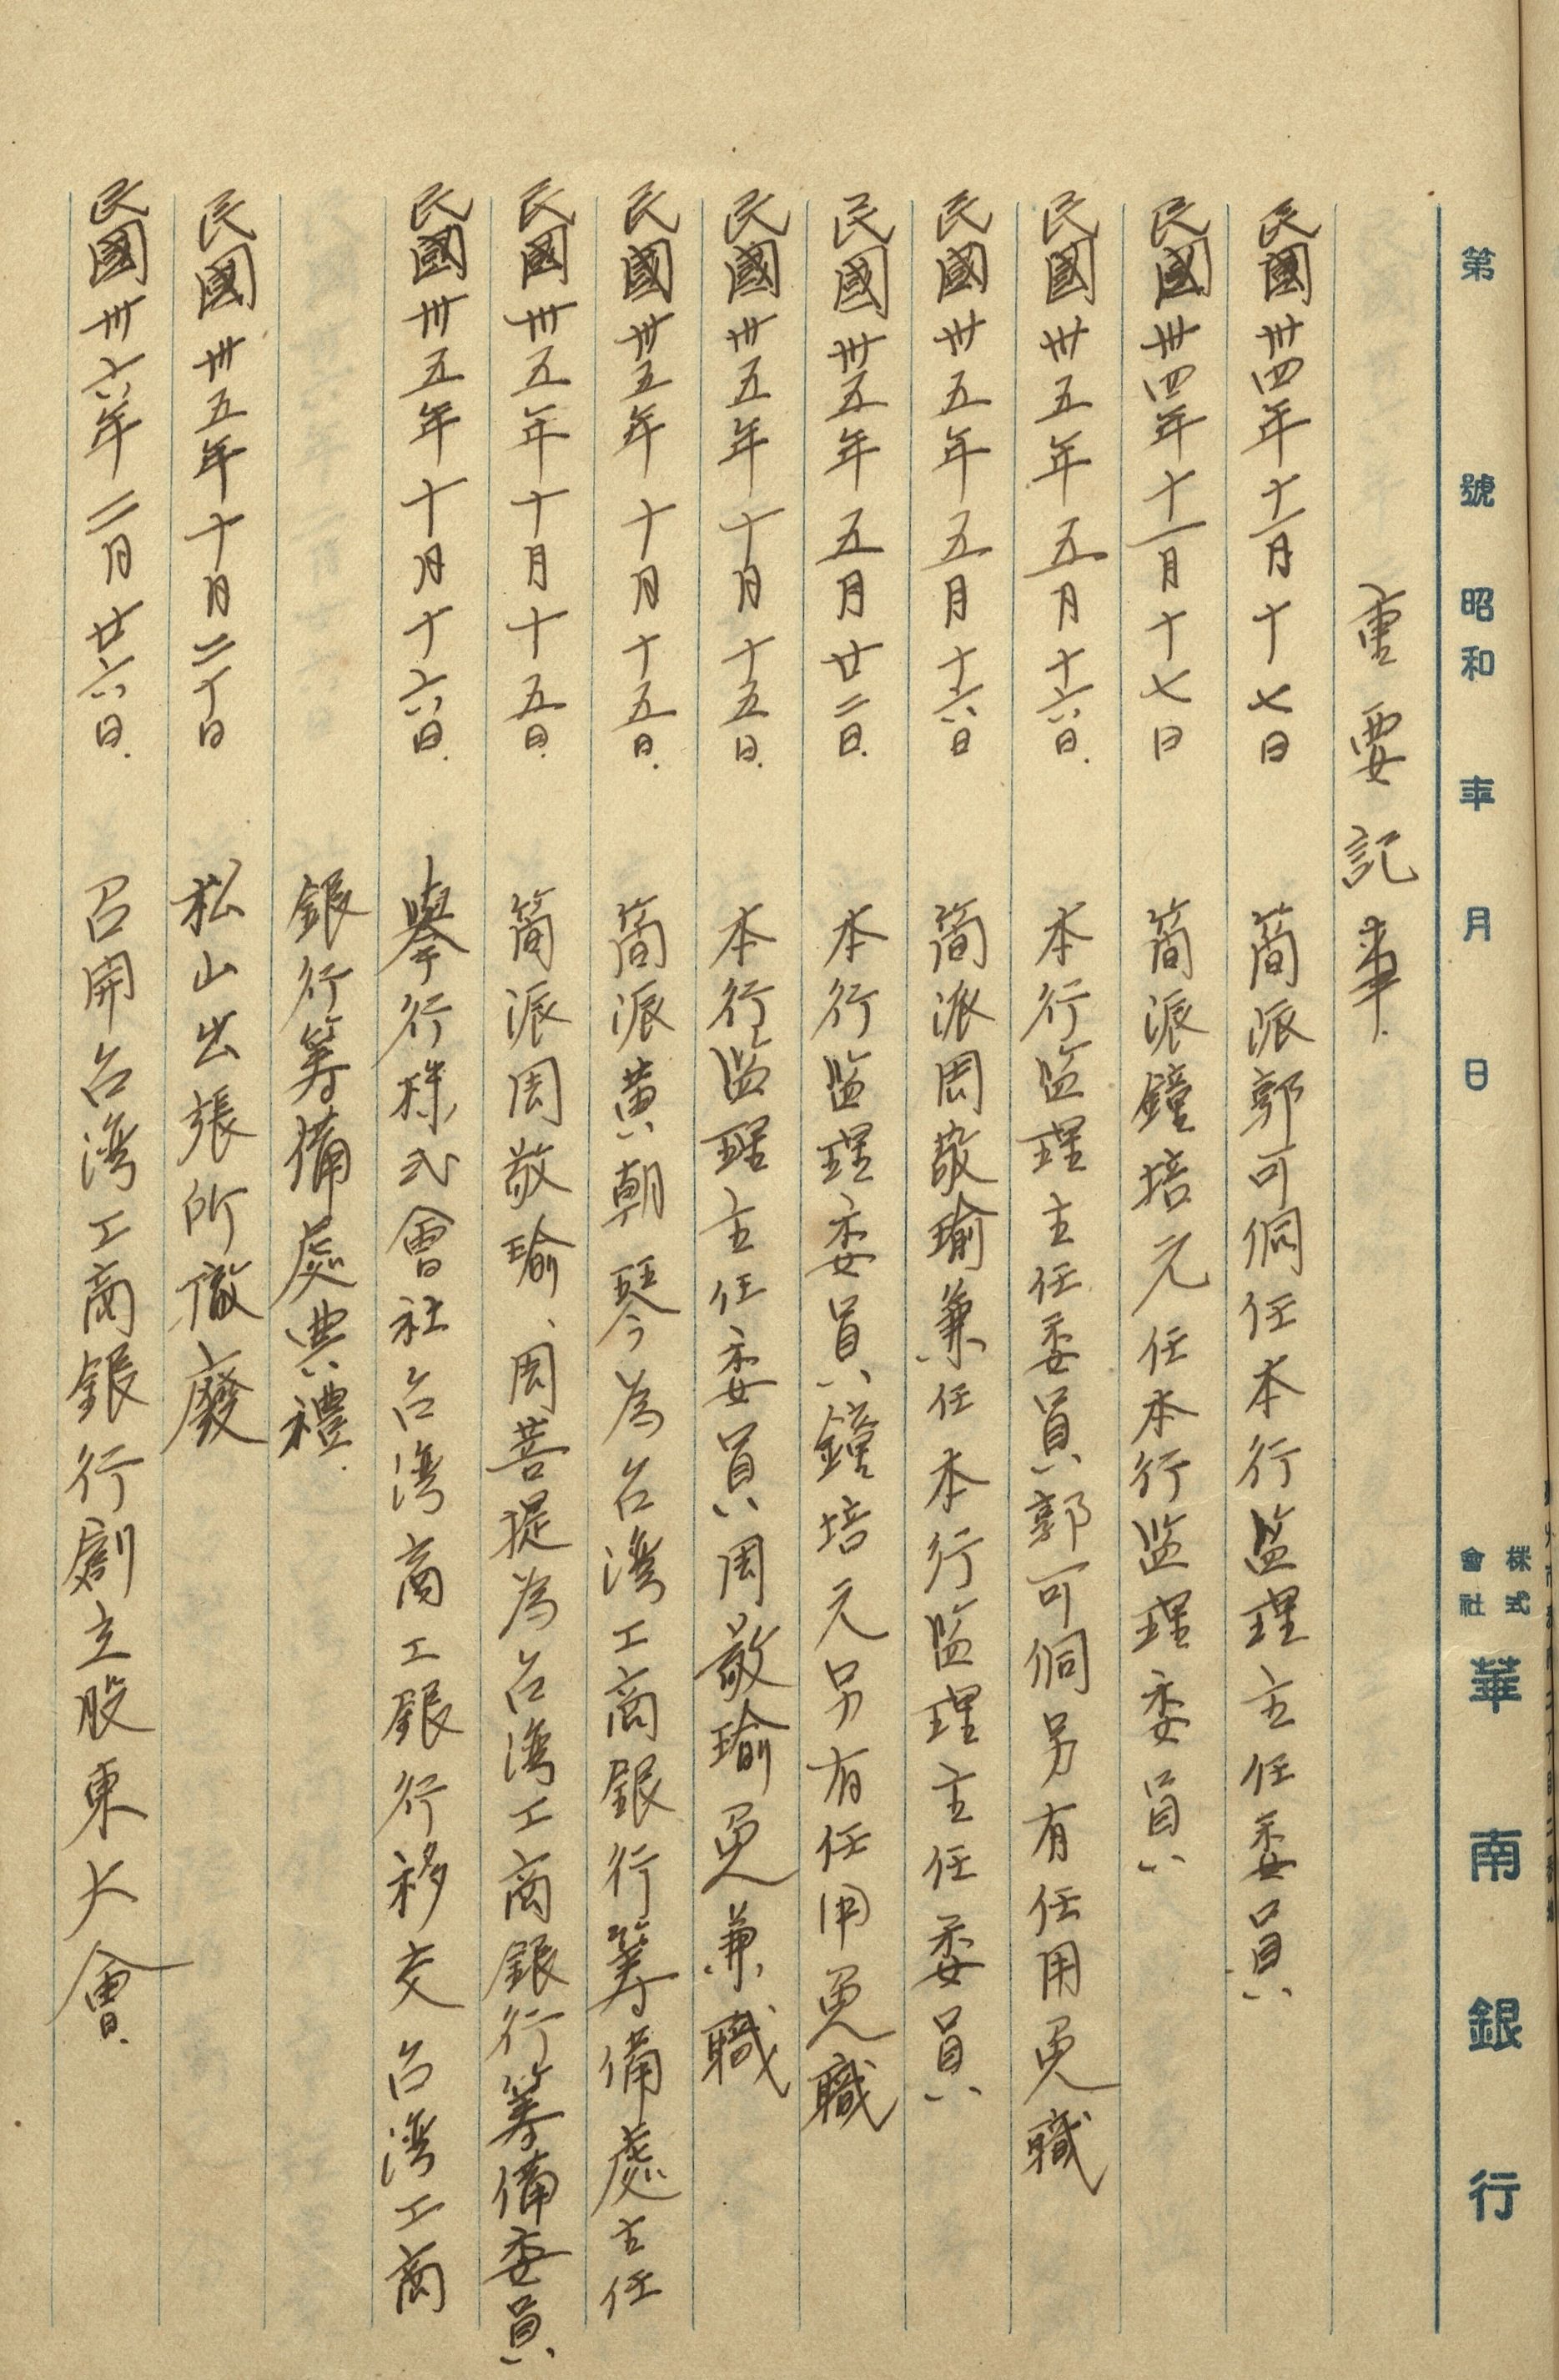 第 號 昭和 年 月 日 株式會社 華南銀行
重要記事.
民國卅四年十一月十七日 簡派郭可侗任本行監理主任委員
民國卅四年十一月十七日 簡派鐘培元任本行監理委員
民國卅五年五月十六日. 本行監理主任委員郭可侗另有任用免職
民國卅五年五月十六日 簡派周敬瑜兼任本行監理主任委員
民國卅五年五月廿二日. 本行監理委員鐘培元另有任用免職
民國卅五年十月十五日. 本行監理主任委員周敬瑜免兼職
民國卅五年十月十五日. 簡派黃朝琴為台湾工商銀行筹備處主任
民國卅五年十月十五日. 簡派周敬瑜、周菩提為台湾工商銀行筹備委員
民國卅五年十月十六日. 舉行株式會社台湾商工銀行移交台湾工商
銀行筹備處典禮.
民國卅五年十月二十日 松山出張所撤廢
民國卅六年二月廿六日. 召開台湾工商銀行創立股東大會.